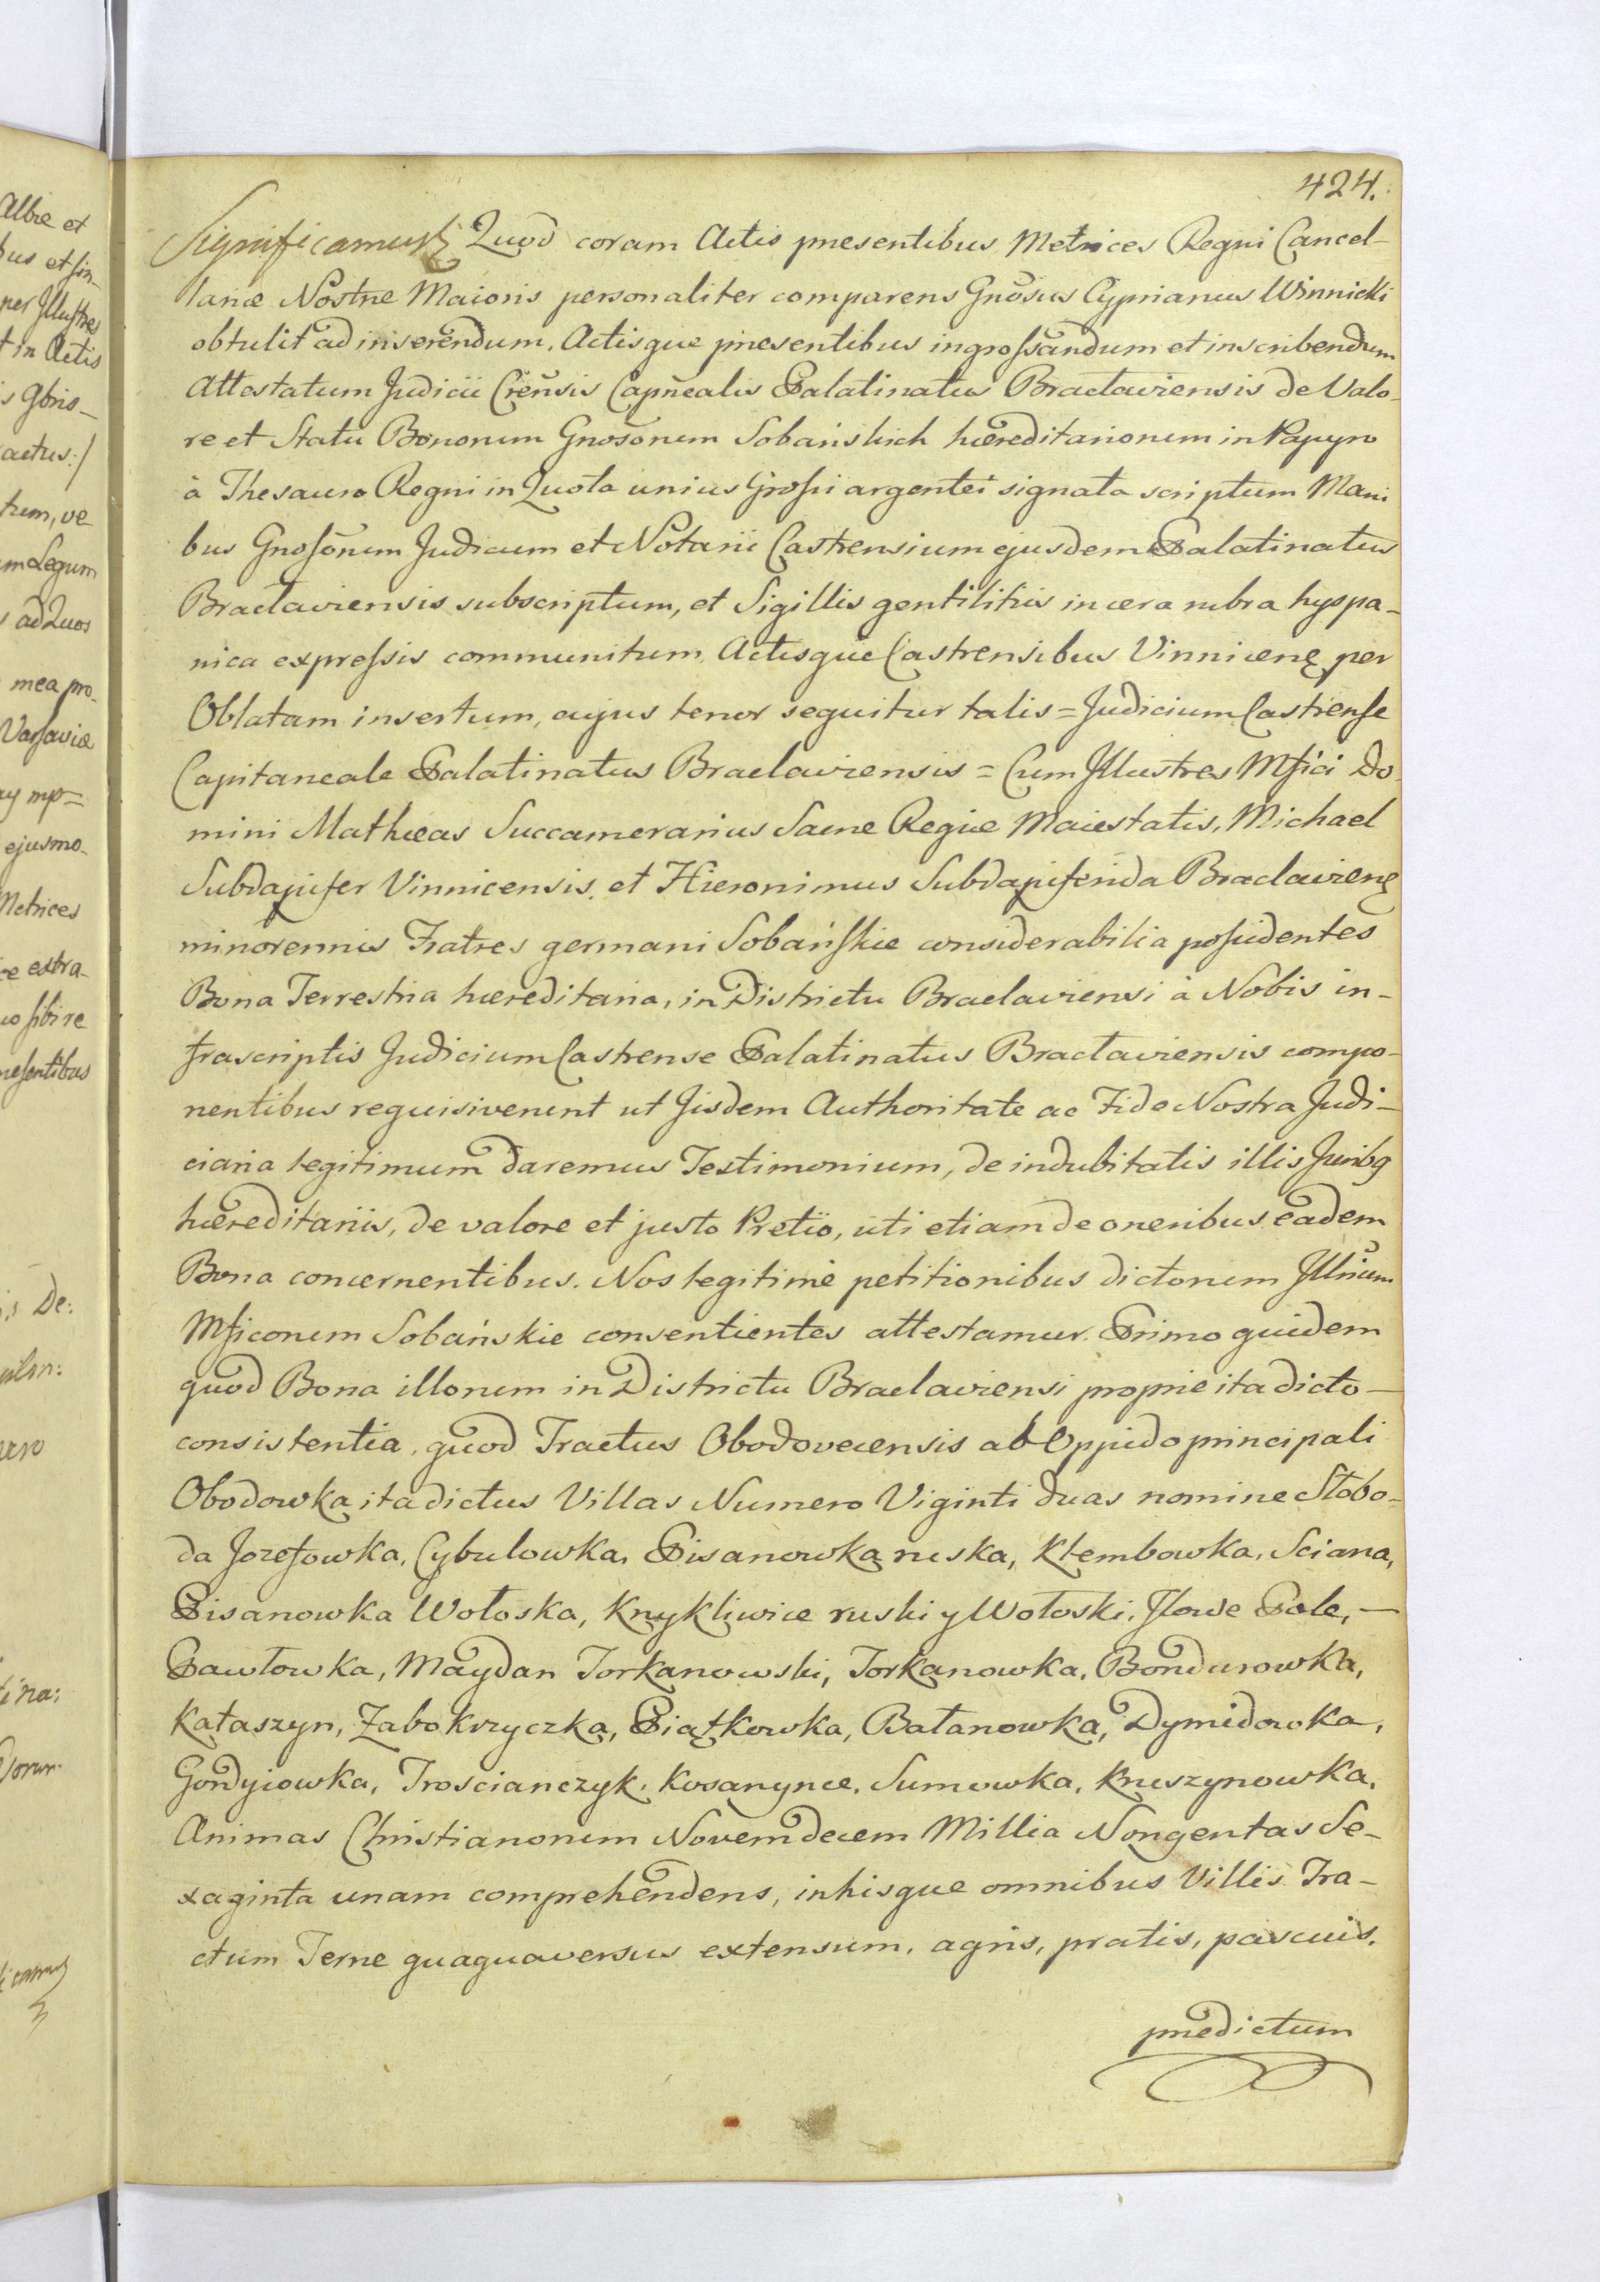 424.
Significamus Quod coram Actis præsentibus Metrices Regni Cancel-
lariæ Nostræ Maioris personaliter comparens Gnõsus Cyprianus Winnicki
obtulit ad inserendum, Actisque præsentibus ingrossandum et inscribendum
Attestatum Judicii Crẽnsis Capñealis Palatinatus Braclaviensis de Valo-
re et Statu Bonorum Gnosõrum Sobańskich hæreditariorum in Papyro
à Thesauro Regni in Quota unius Grossi argentei signata scriptum Mani
bus Gnosõrum Judicum et Notarii Castrensium ejusdem Palatinatus
Braclaviensis subscriptum, et Sigillis gentilitiis in cera rubra hyspa-
nica expressis communitum Actisque Castrensibus Vinnicenę per
Oblatam insertum, cujus tenor sequitur talis = Judicium Castrense
Capitaneale Palatinatus Braclaviensis = Cum Illustres Mfici Do-
mini Mathæas Succamerarius Sacræ Regiæ Maiestatis, Michael
Subdapifer Vinnicensis, et Hieronimus Subdapiferida Braclavienę
minorennis Fratres germani Sobańskie considerabilia possidentes
Bona Terrestria hæreditaria, in Districtu Braclaviensi à Nobis in-
frascriptis Judicium Castrense Palatinatus Braclaviensis compo-
nentibus requisiverunt ut Iisdem Authoritate ac Fide Nostra Judi-
ciaria legitimum daremus Testimonium, de indubitatis illis Juribg
hæreditariis, de valore et justo Pretio, uti etiam de oneribus eadem
Bona concernentibus. Nos legitimè petitionibus dictorum Illrium
Mficorum Sobańskie consentientes attestamur. Primo quidem
quod Bona illorum in Districtu Braclaviensi proprie ita dicto-
consistentia, quod Tractus Obodovecensis ab Oppido principali
Obodowka ita dictus Villas Numero Viginti duas nomine Słobo-
da Jozefowka, Cybulowka, Pisanowka ruska, Kłembowka, Sciana,
Pisanowka Wołoska, Knykliwice ruski y Wołoski, Iłowe Pole,-
Pawłowka, Maydan Torkanowski, Torkanowka, Bondurowka,
Kataszyn, Zabokrzyczka, Piątkowka, Bałanowka, Dymidowka,
Gordyiowka, Troscianczyk, Kosarynce, Sumowka, Kruszynowka,
Animas Christianorum Novemdecem Millia Nongentas Se-
xaginta unam comprehendens, in hisque omnibus Villis Tra-
ctum Terræ quaquaversus extensum, agris, pratis, pascuis,
prædictum